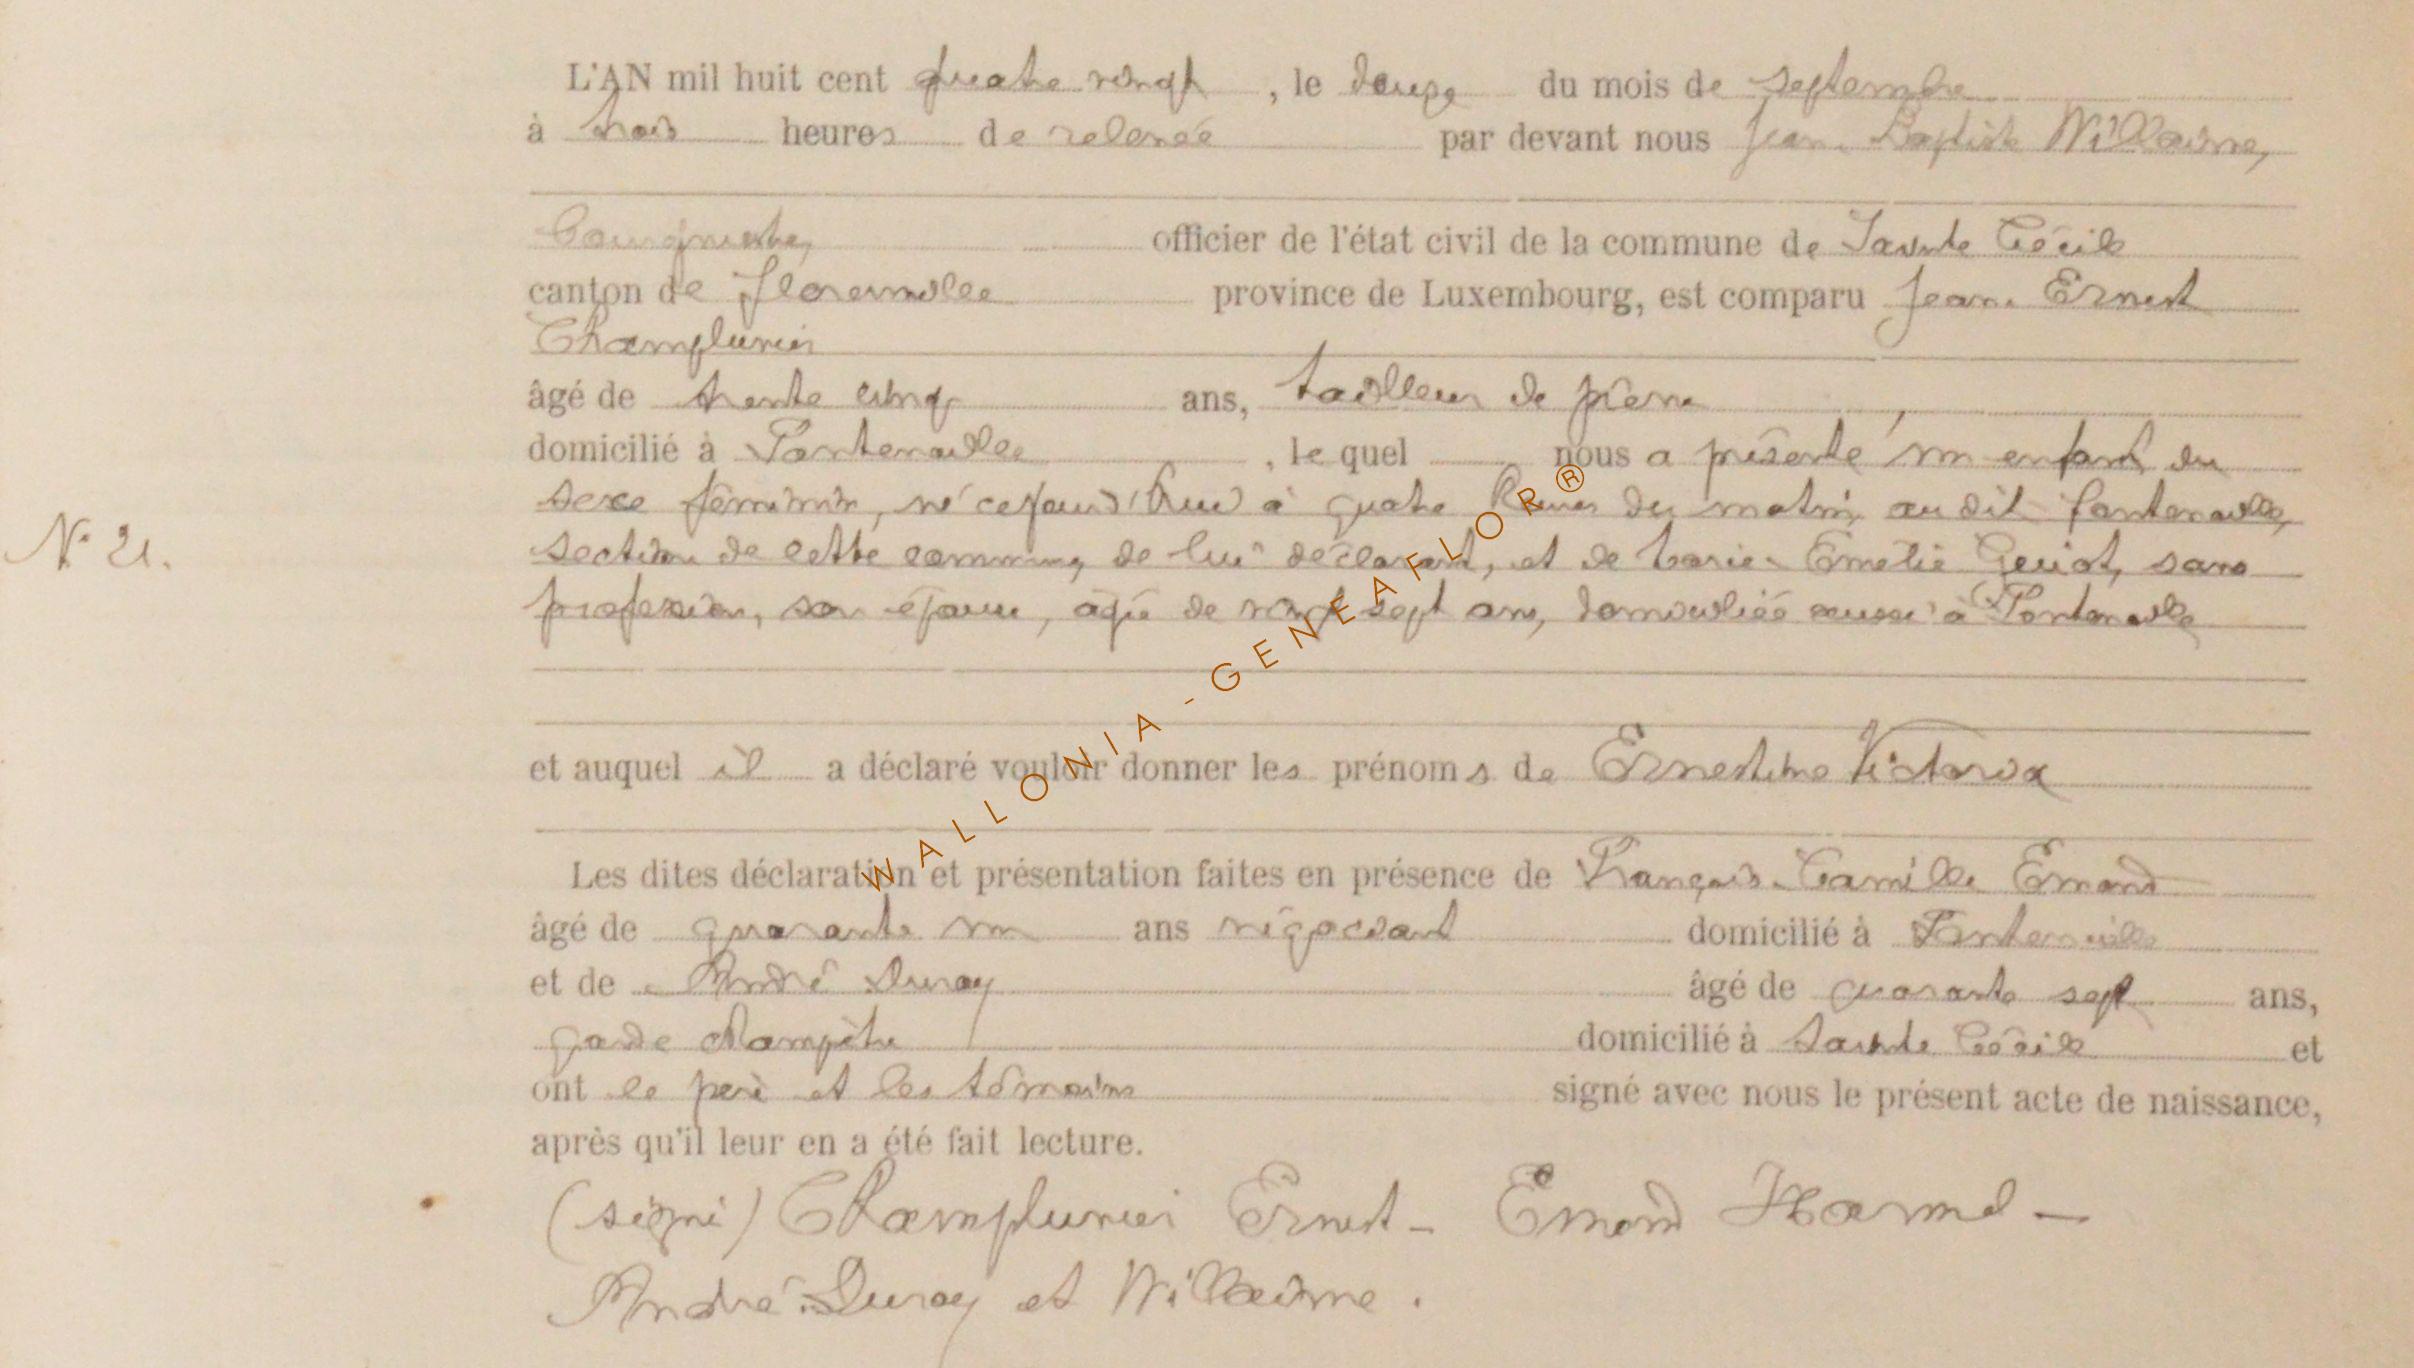 L'AN mil huit cent quatre vingt, le douze du mois de septembre
à trois heures de relevée par devant nous Jean Baptiste Willaime,
Bourgmestre, officier de l'état civil de la commune de Sainte Cécile
canton de Florenville province de Luxembourg, est comparu Jean Ernest
Champlunier
âgé de trente cinq ans, tailleur de pierre
domicilié à Fontenoille, le quel nous a présenté un enfant du
sexe féminin, né cejourd'hui à quatre heures du matin, au dit fontenoille,
N° 21.
section de cette commune, de lui déclarant, et de Marie Emelie Guiot, sans
profession, son épouse, agée de vingt sept ans, domiciliée aussi à Fontenoille
et auquel il a déclaré vouloir donner les prénoms de Ernestine Victoria
Les dites déclaration et présentation faites en présence de François Camille Emond
âgé de quarante un ans négociant domicilié à Fontenoille
et de André Duroy âgé de quarante sept ans,
garde champêtre domicilié à Sainte Cécile et
ont le père et les témoins signé avec nous le présent acte de naissance,
après qu'il leur en a été fait lecture.
(signé) Champlunier Ernest - Emond Hamel -
André Duroy et Willaime.
WALLONIA - GENEAFLOR®